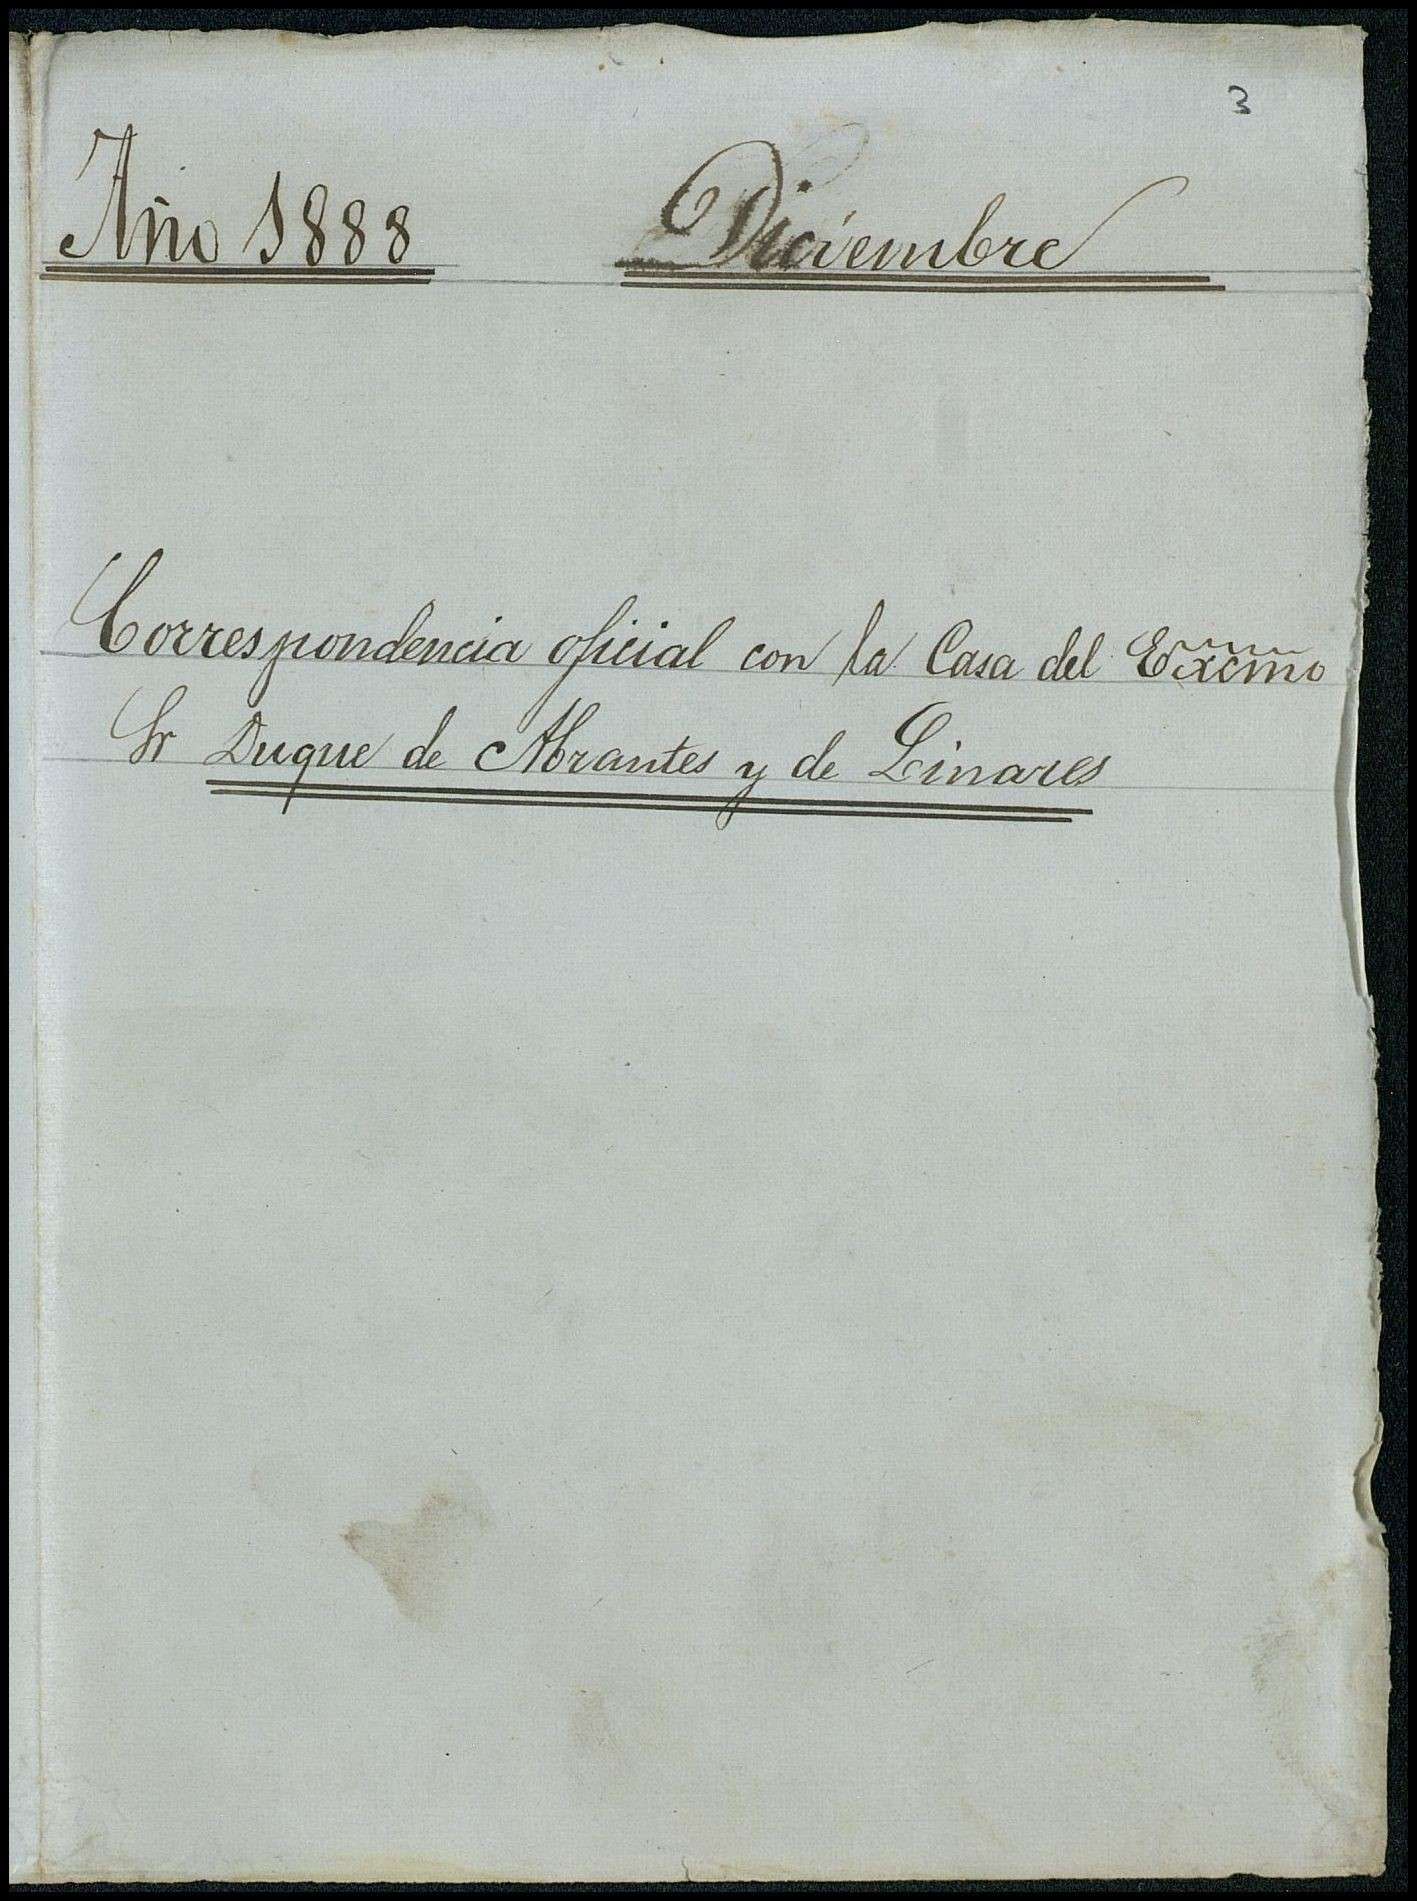 3
Año 1888 Diciembre
Correspondencia oficial con la Casa del Excmo
Sr Duque de Abrantes y de Linares